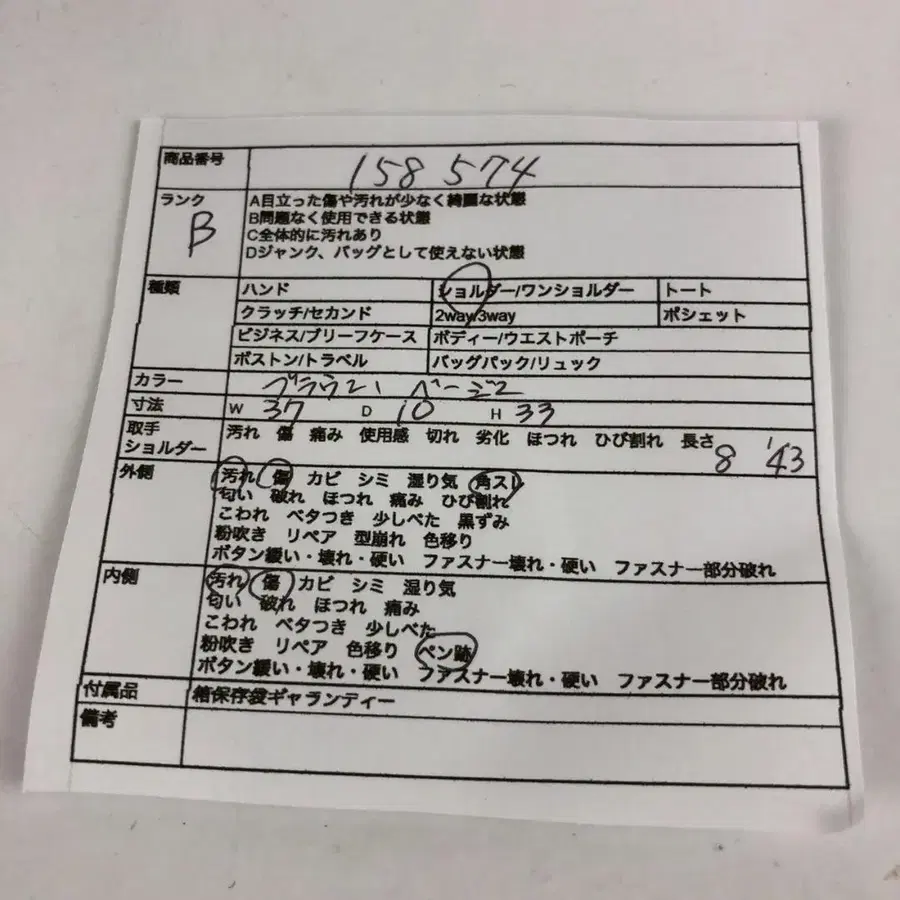 商品番号 158 574
ランク B
A目立った傷や汚れが少なく綺麗な状態
B問題なく使用できる状態
C全体的に汚れあり
Dジャンク、バッグとして使えない状態
種類 ハンド ショルダー/ワンショルダー トート
クラッチ/セカンド 2way/3way ポシェット
ビジネス/ブリーフケース ボディー/ウエストポーチ
ボストン/トラベル バッグパック/リュック
カラー ブラウン ベージュ
寸法 W 37 D 10 H 33
取手 ショルダー 汚れ 傷 痛み 使用感 切れ 劣化 ほつれ ひび割れ 長さ 8 43
外側 汚れ 傷 カビ シミ 湿り気 角スレ
匂い 破れ ほつれ 痛み ひび割れ
こわれ ベタつき 少しべた 黒ずみ
粉吹き リペア 型崩れ 色移り
ボタン緩い・壊れ・硬い ファスナー壊れ・硬い ファスナー部分破れ
内側 汚れ 傷 カビ シミ 湿り気
匂い 破れ ほつれ 痛み
こわれ ベタつき 少しべた
粉吹き リペア 色移り ペン跡
ボタン緩い・壊れ・硬い ファスナー壊れ・硬い ファスナー部分破れ
付属品 箱保存袋ギャランティー
備考